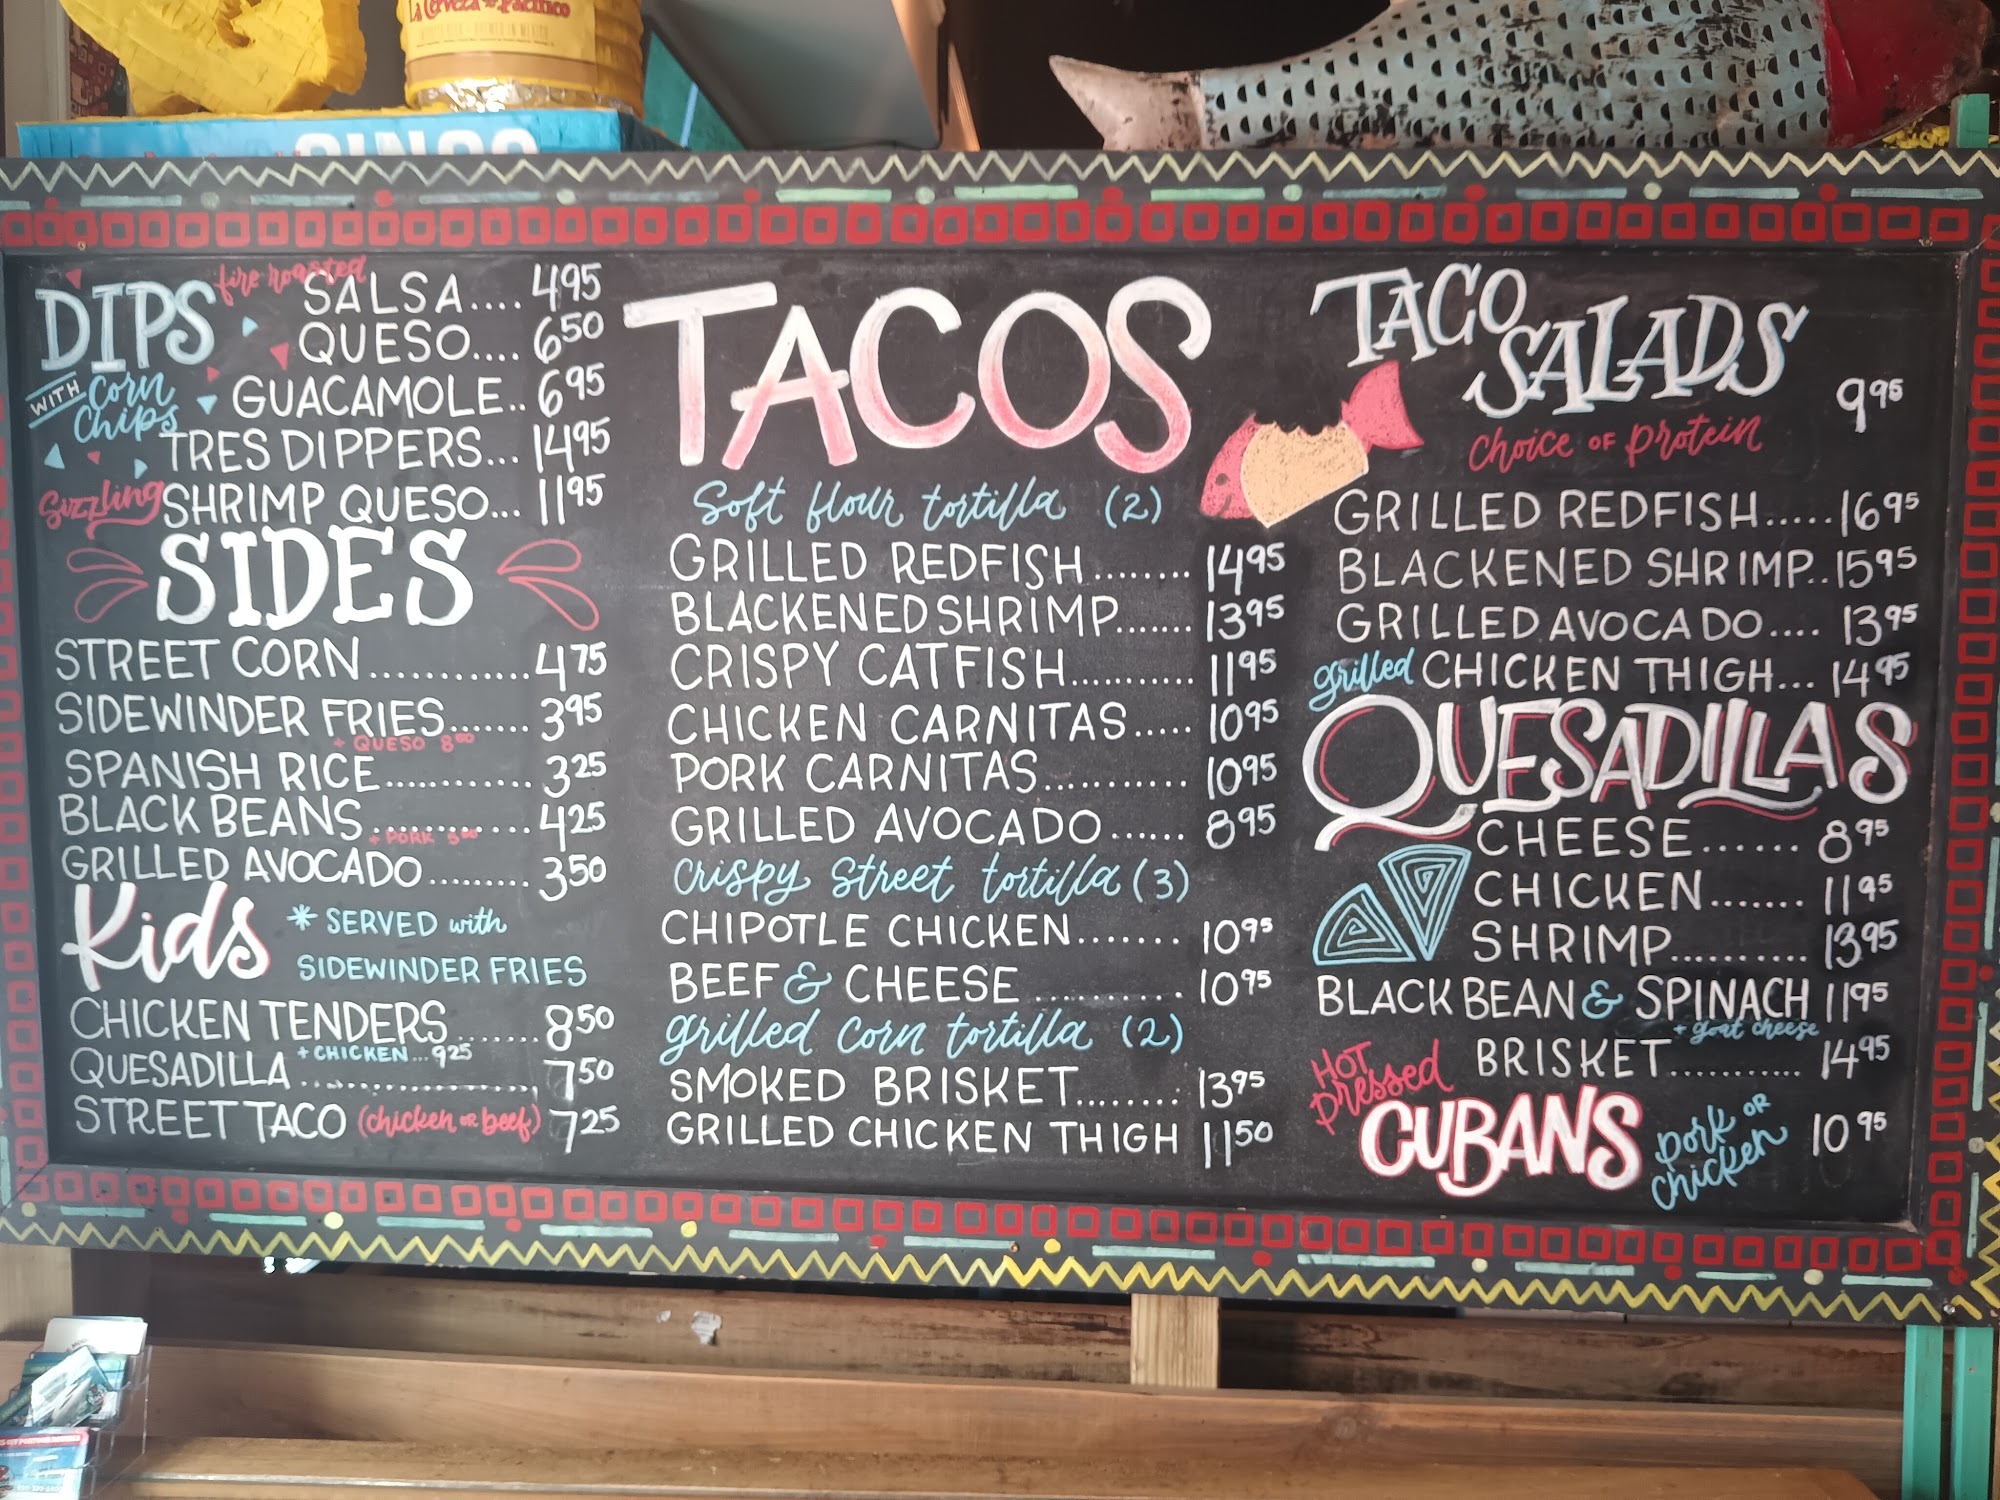 La Cerveza del Pacifico
CINCO
DIPS
WITH Corn Chips
fire roasted
SALSA.... 4.95
QUESO.... 6.50
GUACAMOLE.. 6.95
TRES DIPPERS... 14.95
Sizzling SHRIMP QUESO... 11.95
SIDES
STREET CORN............ 4.75
SIDEWINDER FRIES....... 3.95
+ QUESO 8.00
SPANISH RICE............ 3.25
BLACK BEANS............ 4.25
+ PORK 5.00
GRILLED AVOCADO......... 3.50
Kids
* SERVED with
SIDEWINDER FRIES
CHICKEN TENDERS....... 8.50
+ CHICKEN... 9.25
QUESADILLA.................. 7.50
STREET TACO (chicken or beef) 7.25
TACOS
Soft flour tortilla (2)
GRILLED REDFISH........ 14.95
BLACKENED SHRIMP....... 13.95
CRISPY CATFISH........... 11.95
CHICKEN CARNITAS..... 10.95
PORK CARNITAS........... 10.95
GRILLED AVOCADO...... 8.95
Crispy Street tortilla (3)
CHIPOTLE CHICKEN....... 10.95
BEEF & CHEESE .......... 10.95
grilled corn tortilla (2)
SMOKED BRISKET........ 13.95
GRILLED CHICKEN THIGH 11.50
TACO SALADS
9.95
Choice OF Protein
GRILLED REDFISH..... 16.95
BLACKENED SHRIMP.. 15.95
GRILLED AVOCADO.... 13.95
grilled CHICKEN THIGH... 14.95
QUESADILLAS
CHEESE...... 8.95
CHICKEN....... 11.95
SHRIMP.......... 13.95
BLACK BEAN & SPINACH 11.95
+ goat cheese
BRISKET........... 14.95
HOT Pressed
CUBANS
pork OR chicken 10.95